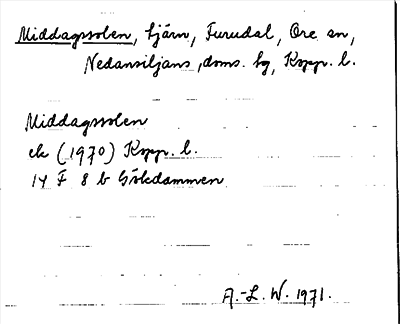 Middagssolen, tjärn, Furudal, Ore sn,
Nedansiljans, doms. hg, Kopp. l.
Middagssolen
ek (1970) Kopp. l.
14 F 8 b Gökdammen
A.-L. W. 1971.